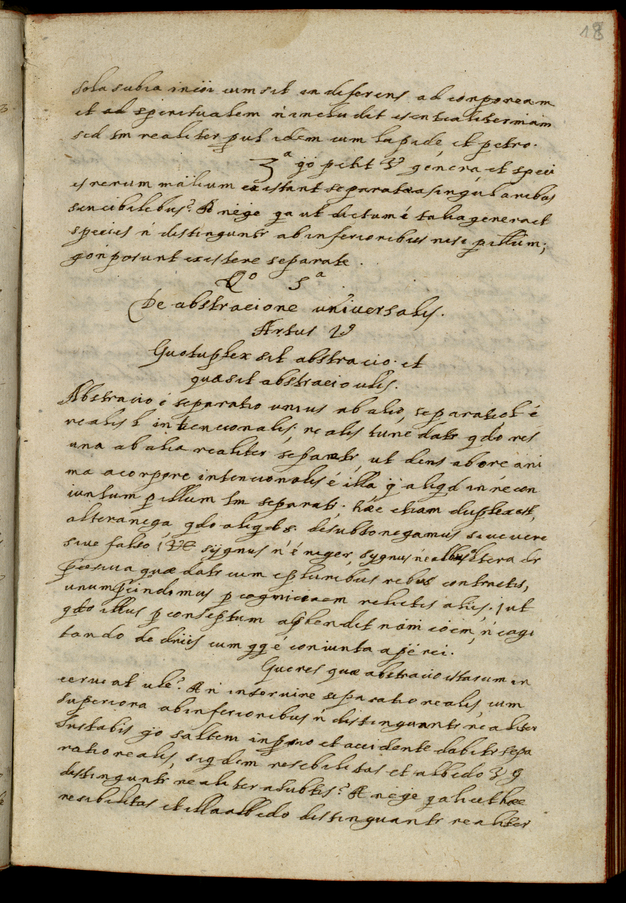 18
sola subia inēoi cum sit indiferens ad conpoream
et ad spiritualem ń includit essentialiter
sed tm realiter put idem cum lapide, et petro.
3ª go petit genera, et speci
es rerum existant separata a singularibus
sencibilibus? R nege qa ut dictum é talia genera et
species ń distinguntr ab inferioribus nisi p illum;
go ń posunt existere separate.
Qº 5ª
De abstracione universalis.
Artus
Quotuplex sit abstracio. et
quæ sit abstracio ulis.
Abstracio é separatio unius ab alio, separatio é
realis l intencionalis; realis tunc datr qdo res
una ab alia realiter separatr, ut dens ab ore ani
ma a corpore intencionalis é illa q aliqd in re con
iuntum p illum tm separatr. hæc etiam duplex est,
altera nega qdo aliqd de subto negamus sive vere
sive falso, sygnus ń é niger, sygnus ń é albus altera dr
quæ datr cum ex pluribus rebus contractis,
unum p cognicionem relictis aliis, ut
qdo illus p conseptum aphendit nām cōem, ń cogi
tando de driis cum é coniunta a pē rei.
Queres quæ abstracio istarum in
serviat ulē? R ń intervinire separatio realis, cum
superiora ab inferioribus ń distinguantr realiter
Instabis go saltem in et accidente dabitr sepa
ratio realis, siqdem resibilitas et albedo
distinguntr realiter a subtis? R nege q licet hæc
resibilitas et illa albedo distinguantr realiter